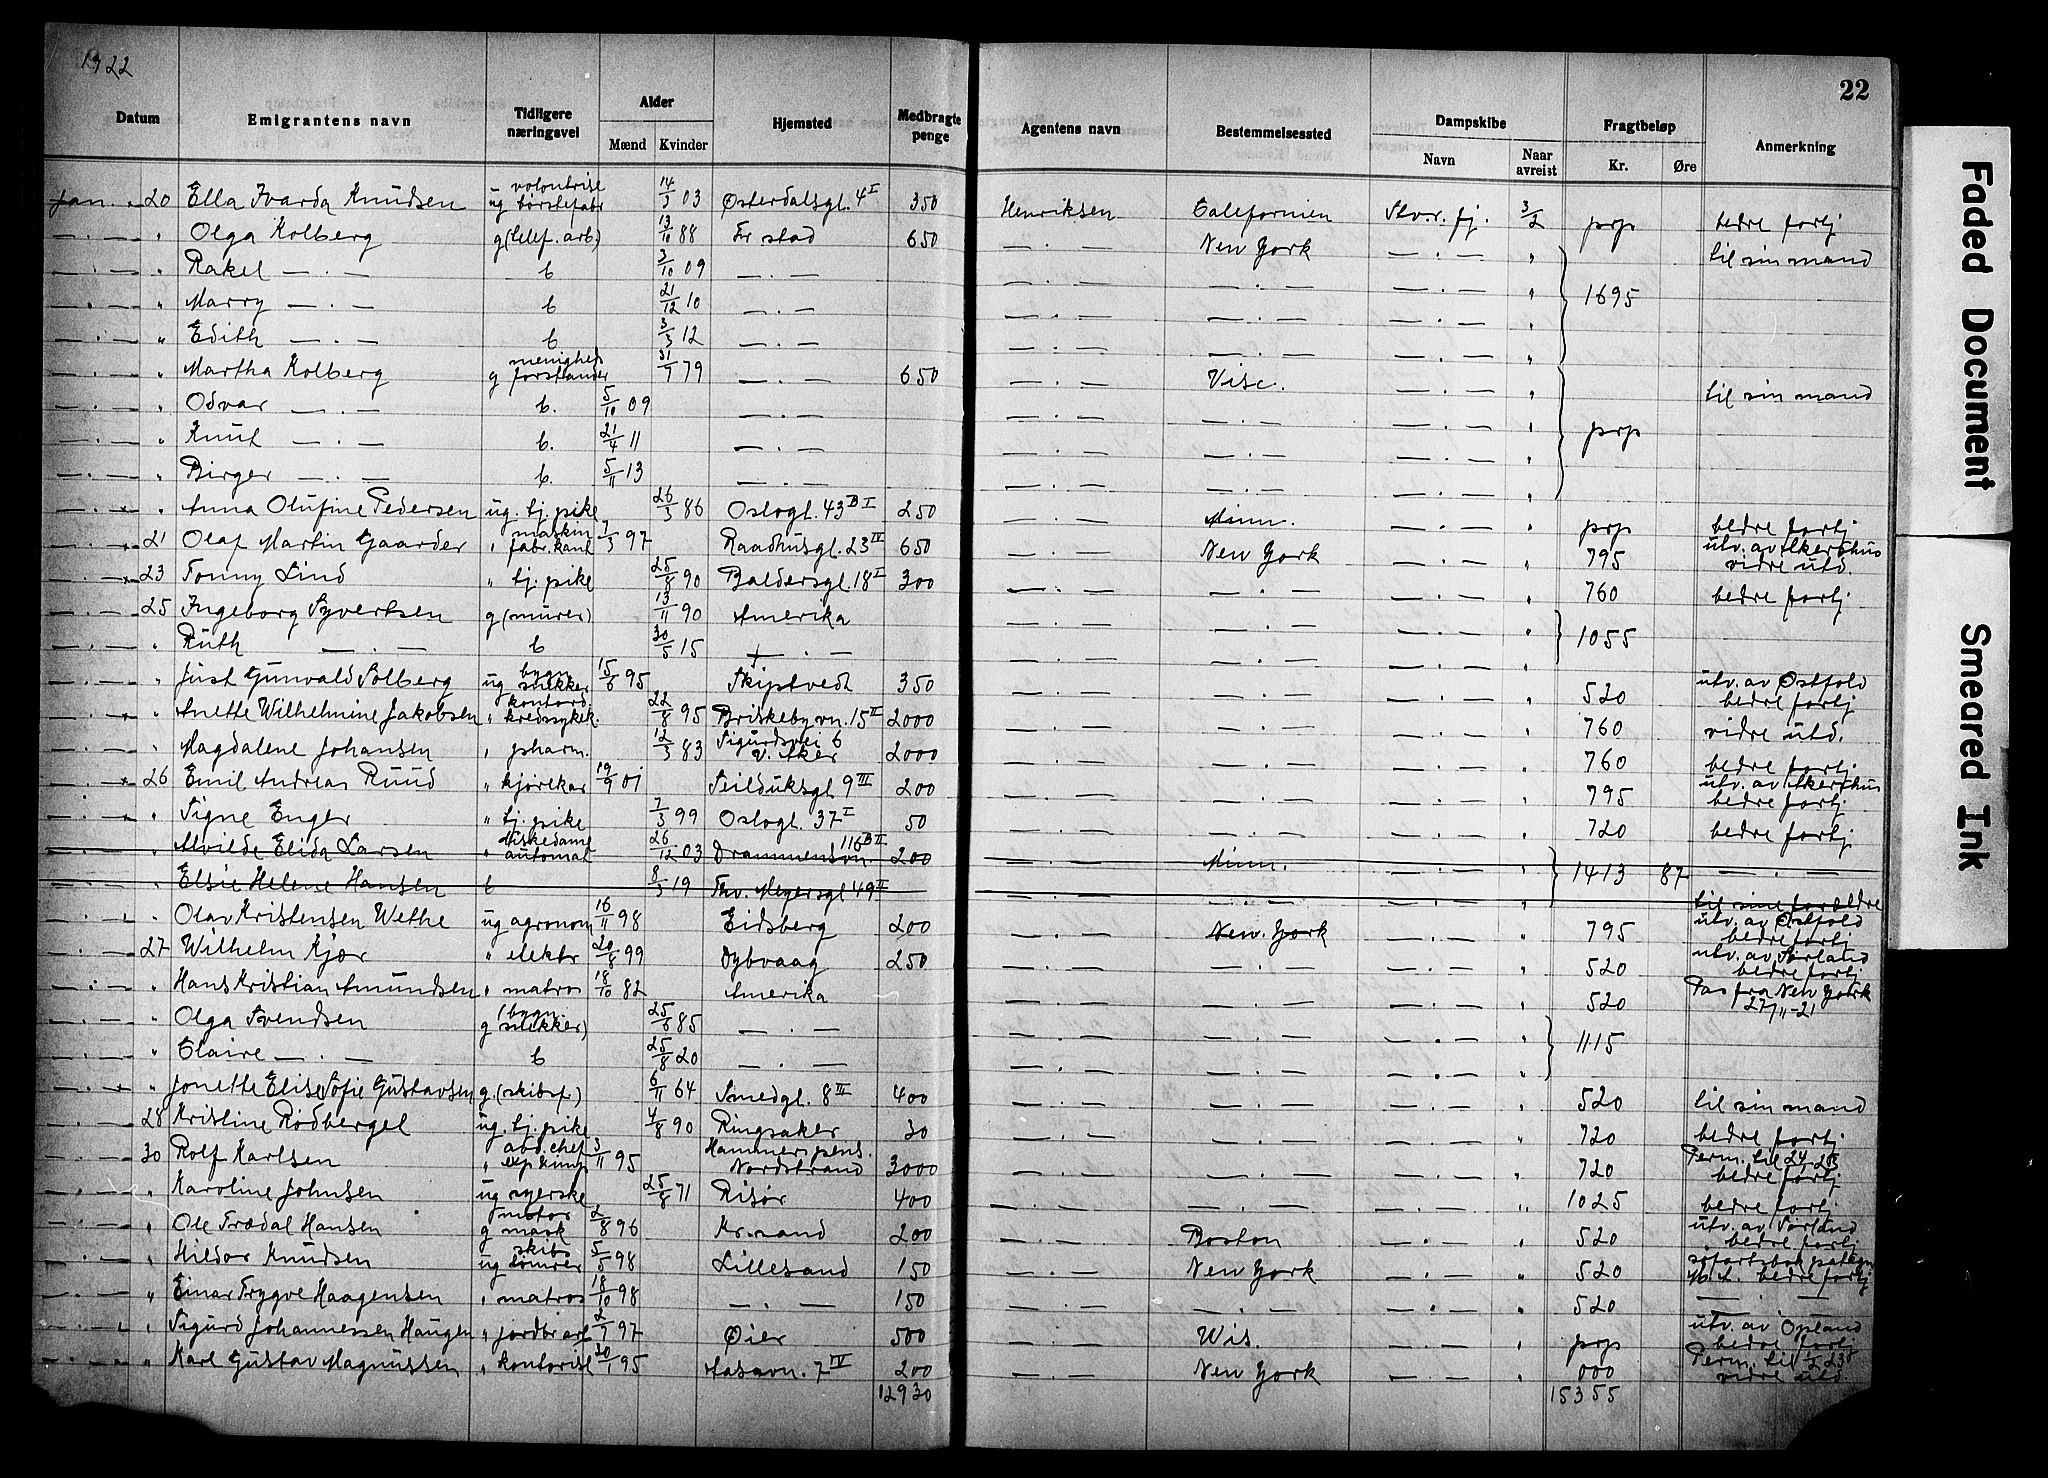 1922
22
Datum | Emigrantens navn | Tidligere næringsvei | Alder Mænd Kvinder | Hjemsted | Medbragte penge | Agentens navn | Bestemmelsessted | Dampskibe Navn Naar avreist | Fragtbeløp Kr. Øre | Anmerkning
Jan. 20 Ella Ivarda Knudsen ug volontrise børstefabr 14/3 03 Østerdalsgt. 4 I 350 Henriksen Californien Stvr. fj. 3/2 prp bedre fortj
" Olga Kolberg g (telef. arb) 13/10 88 Fr stad 650 — . — New York — . — " til sin mand
" Rakel — . — b 3/10 09 — . — — . — — . — — . — "
" Marry — . — b 21/12 10 — . — — . — — . — — . — " 1695
" Edith — . — b 3/3 12 — . — — . — — . — — . — "
" Martha Kolberg g menigheds forstander 31/7 79 — . — 650 — . — Visc. — . — " til sin mand
" Odvar — . — b. 5/10 09 — . — — . — — . — — . — "
" Knut — . — b. 21/4 11 — . — — . — — . — — . — " prp
" Birger — . — b. 5/11 13 — . — — . — — . — — . — "
" Anna Olufine Pedersen ug. tj. pike 26/3 86 Oslogt. 43 B I 250 — . — Minn. — . — " prp bedre fortj
21 Olaf Martin Gaarder " maskin fabr. kant 7/3 97 Raadhusgt. 23 IV 650 — . — New York — . — " 795 utv. av Akershus vidre utd.
23 Fonny Lind " tj. pike 25/8 90 Baldersgt. 18 I 300 — . — — . — — . — " 760 bedre fortj
25 Ingeborg Syvertsen g (murer) 13/11 90 Amerika — . — — . — — . — "
" Ruth — . — b 30/5 15 — . — — . — — . — — . — " 1055
" Just Gunvald Solberg ug bygn. snekker 15/6 95 Skiptvedt 350 — . — — . — — . — " 520 utv. av Østfold bedre fortj
" Anette Wilhelmine Jakobsen " kontord. kredssykek. 22/8 95 Briskebyvn. 15 II 2000 — . — — . — — . — " 760 vidre utd.
" Magdalene Johansen " pharm. 12/3 83 Sigurdsvei 6 V. Aker 2000 — . — — . — — . — " 760 bedre fortj.
26 Emil Andreas Ruud " kjørekar 19/9 01 Seilduksgt 9 III 200 — . — — . — — . — " 795 utv. av Akershus bedre fortj.
" Signe Enger " tj. pike 7/3 99 Oslogt. 37 I 50 — . — — . — — . — " 720 bedre fortj
" Alvilde Elida Larsen " diskedame automat 26/12 03 Drammensvn. 116 B II 200 — . — Minn. — . — " 1413 87 — . —
" Elsie Helene Hansen b 8/3 19 Thv. Meyersgt 49 II — . — — . — — . — " til sine forældre
" Olav Kristensen Wethe ug agronom 16/11 98 Eidsberg 200 — . — New York — . — " 795 utv. av Østfold bedre fortj
27 Wilhelm Kjær " elektr 20/8 99 Dybvaag 250 — . — — . — — . — " 520 utv. av Sørland bedre fortj
" Hans Kristian Amundsen " matros 18/10 82 Amerika — . — — . — — . — " 520 Pas fra New York 27/11-21
" Olga Svendsen g (bygn. snekker) 25/6 85 — . — — . — — . — — . — "
" Claire — . — b 25/8 20 — . — — . — — . — — . — " 1115
" Jonette Elise Sofie Gustavsen g. (skibsf.) 6/11 64 Smedgt. 8 III 400 — . — — . — — . — " 520 til sin mand
28 Kristine Rødbergel ug. tj. pike 4/8 90 Ringsaker 30 — . — — . — — . — " 720 bedre fortj
30 Rolf Karlsen " avd. chef 3/11 95 Hammers pens. Nordstrand 3000 — . — — . — — . — " 720 Perm. til bedre fortj
" Karoline Johnsen ug syerske 25/8 71 Risør 400 — . — — . — — . — " 1025 bedre fortj.
" Ole Trædal Hansen g motor mask 2/8 96 Kr. sand 200 — . — Boston — . — " 520 utv. av Sørland bedre fortj
" Hildor Knudsen ug skibs tømrer 5/5 98 Lillesand 150 — . — New York — . — " 520 søfartsbok bedre fortj
" Einar Trygve Haagensen " matros 18/10 98 — . — 150 — . — — . — — . — " 520 — . —
" Sigurd Johannessen Haugen " jordbr arb 2/7 97 Øier 500 — . — Wis. — . — " prp utv. av Opland bedre fortj
" Karl Gustav Magnussen " kontorist 30/1 95 Aasavn. 7 IV 200 — . — New York — . — " 000 Perm. til 1/2 23 vidre utd.
12930 15355
Faded Document
Smeared Ink